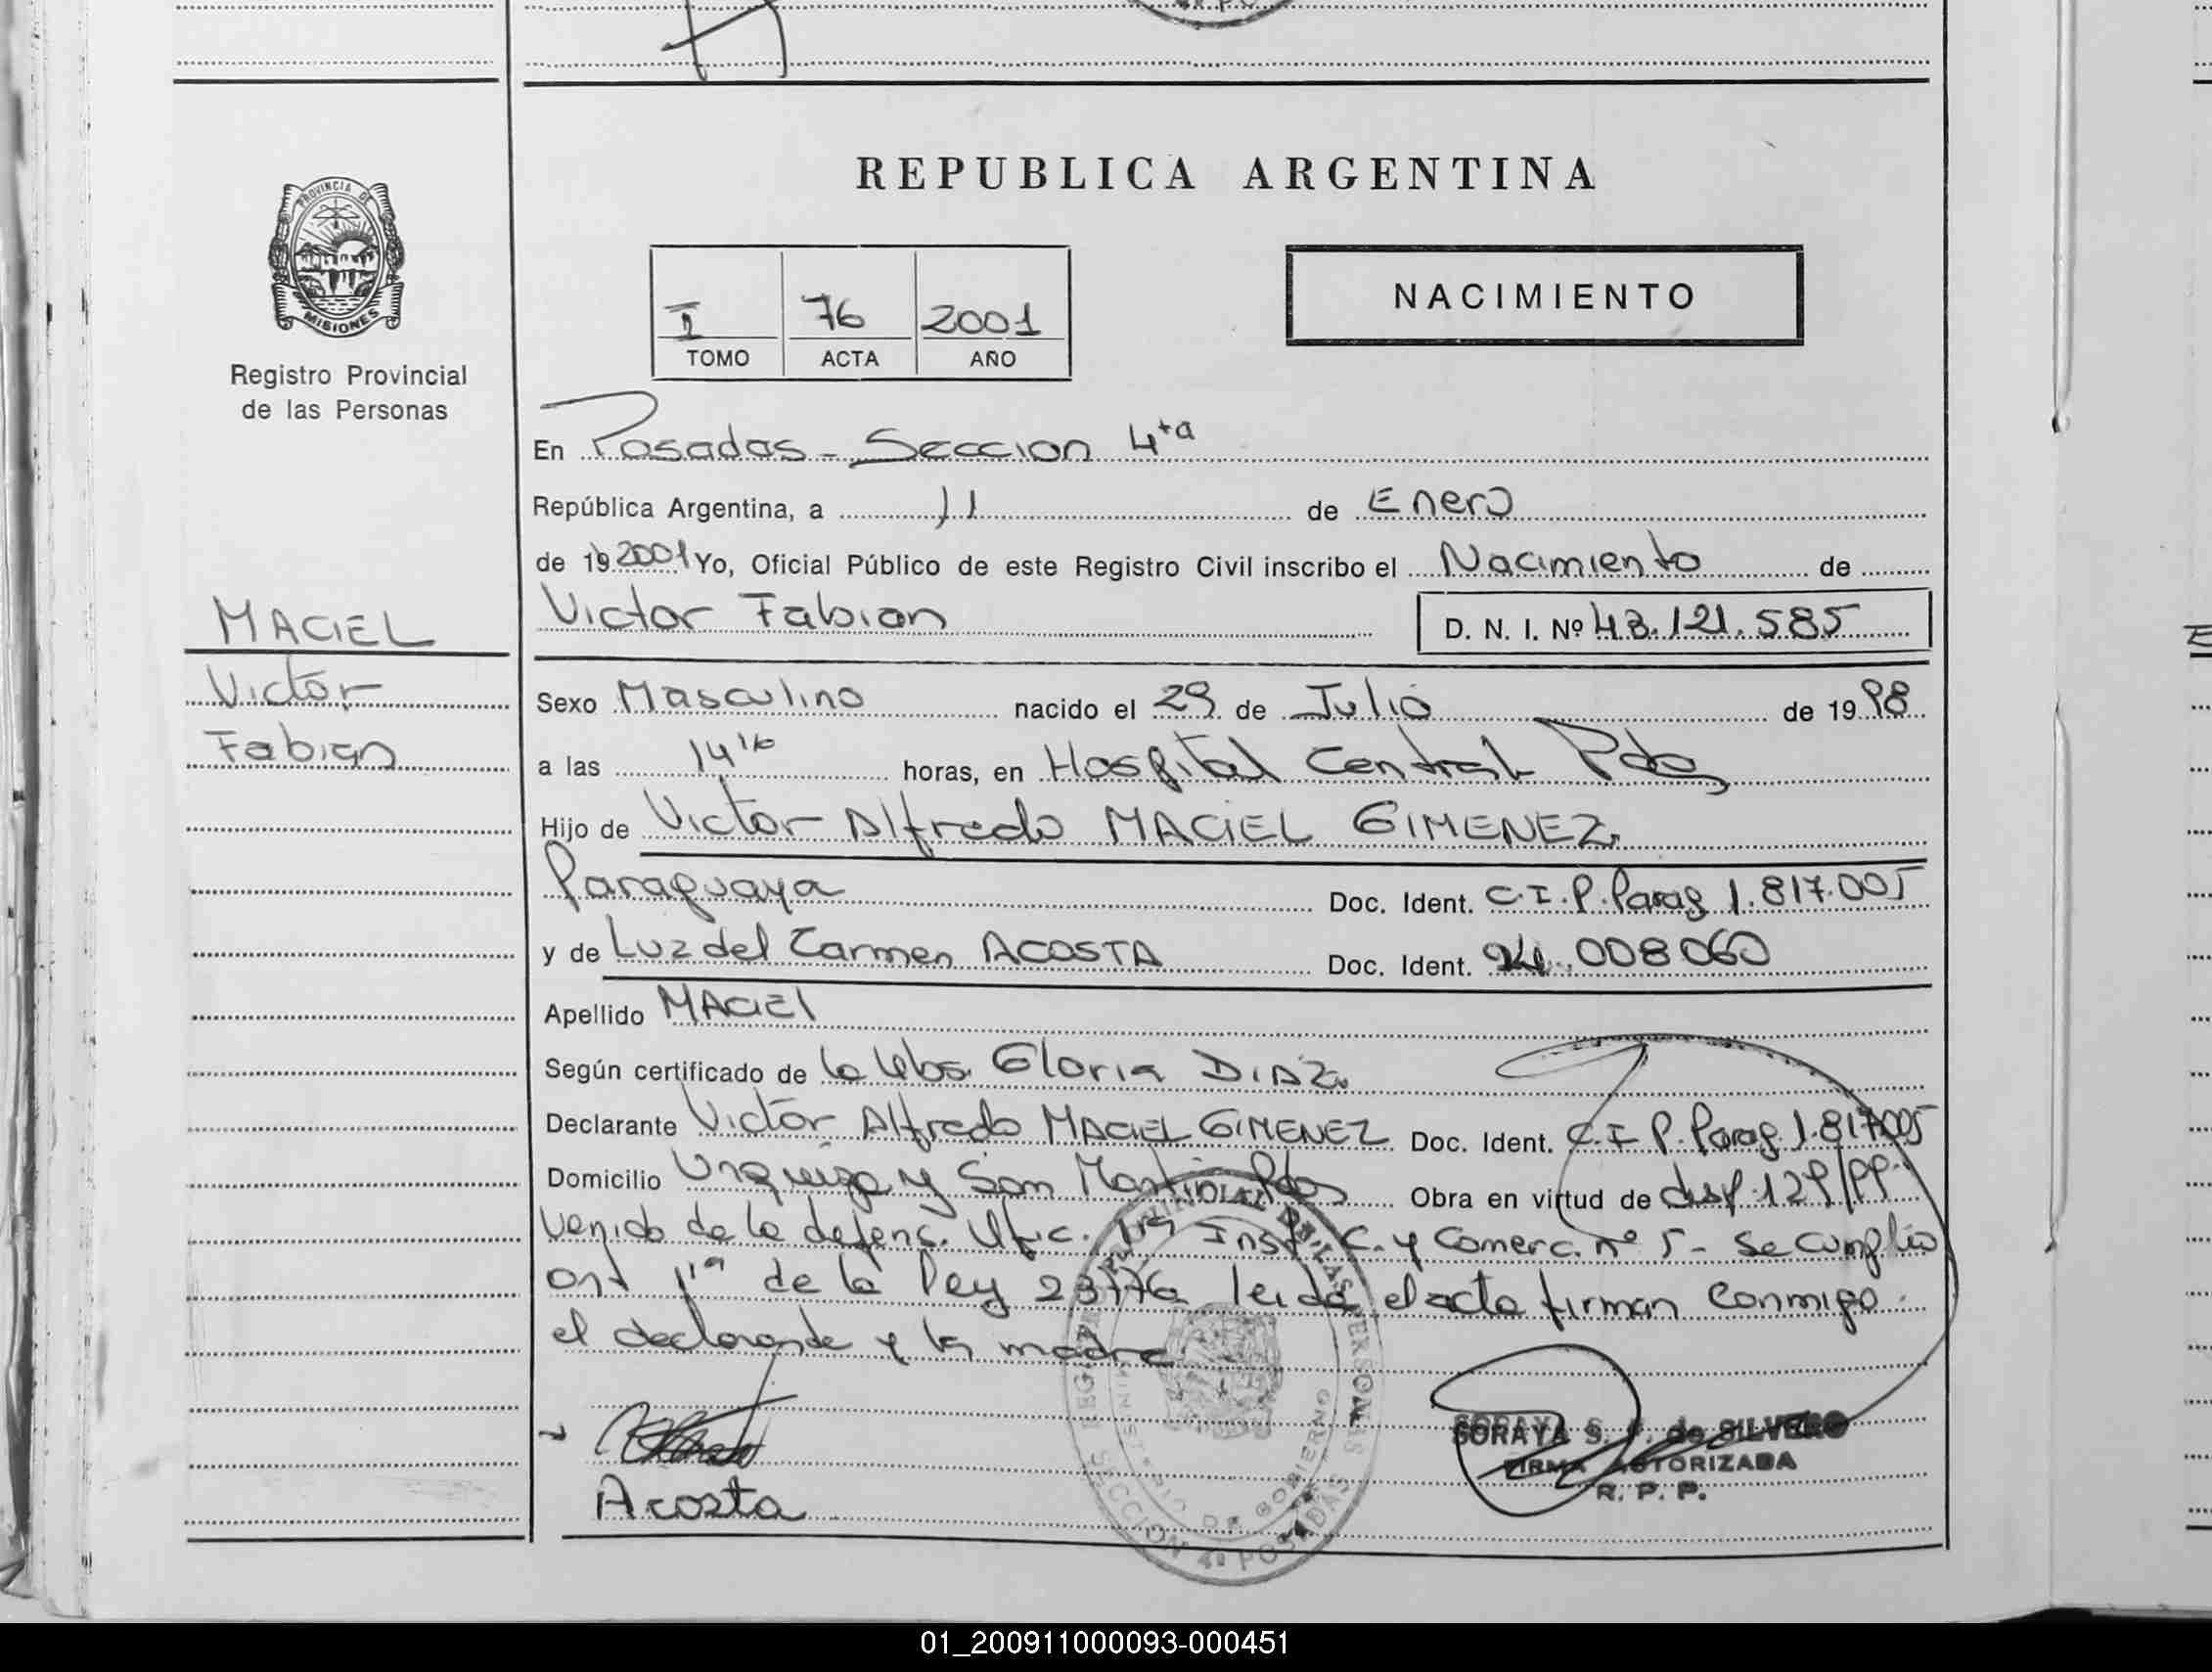 REPUBLICA ARGENTINA
PROVINCIA DE
MISIONES
Registro Provincial
de las Personas
I 76 2001
TOMO ACTA AÑO
NACIMIENTO
En Posadas - Seccion 4ta
República Argentina, a 11 de Enero
de 19 2001 Yo, Oficial Público de este Registro Civil inscribo el Nacimiento de
Victor Fabian D. N. I. Nº 43.121.585
MACIEL
Victor
Fabian
Sexo Masculino nacido el 29 de Julio de 19 98
a las 14 10 horas, en Hospital Central Pdas
Hijo de Victor Alfredo MACIEL GIMENEZ.
Paraguaya Doc. Ident. C.I.P. Parag 1.817.005
y de Luz del Carmen ACOSTA Doc. Ident. 24.008060
Apellido MACIEl
Según certificado de la Gloria DIAZ.
Declarante Victor Alfredo MACIEL GIMENEZ Doc. Ident. C.I.P. Parag. 1.817005
Domicilio Urquiza y San Martin Pdas Obra en virtud de disp. 129/99
venido de la defens. Ofic. 1ra Inst. C. y Comerc. nº 5 - Se cumplio
art 1ra de la ley 23776 leida el acta firman conmigo
el declarante y la madre
Acosta
SORAYA S. F. de SILVERO
FIRMA AUTORIZADA
R. P. P.
REGISTRO PROVINCIAL DE LAS PERSONAS
MINISTERIO DE GOBIERNO
SECCION 4ª POSADAS
01_200911000093-000451